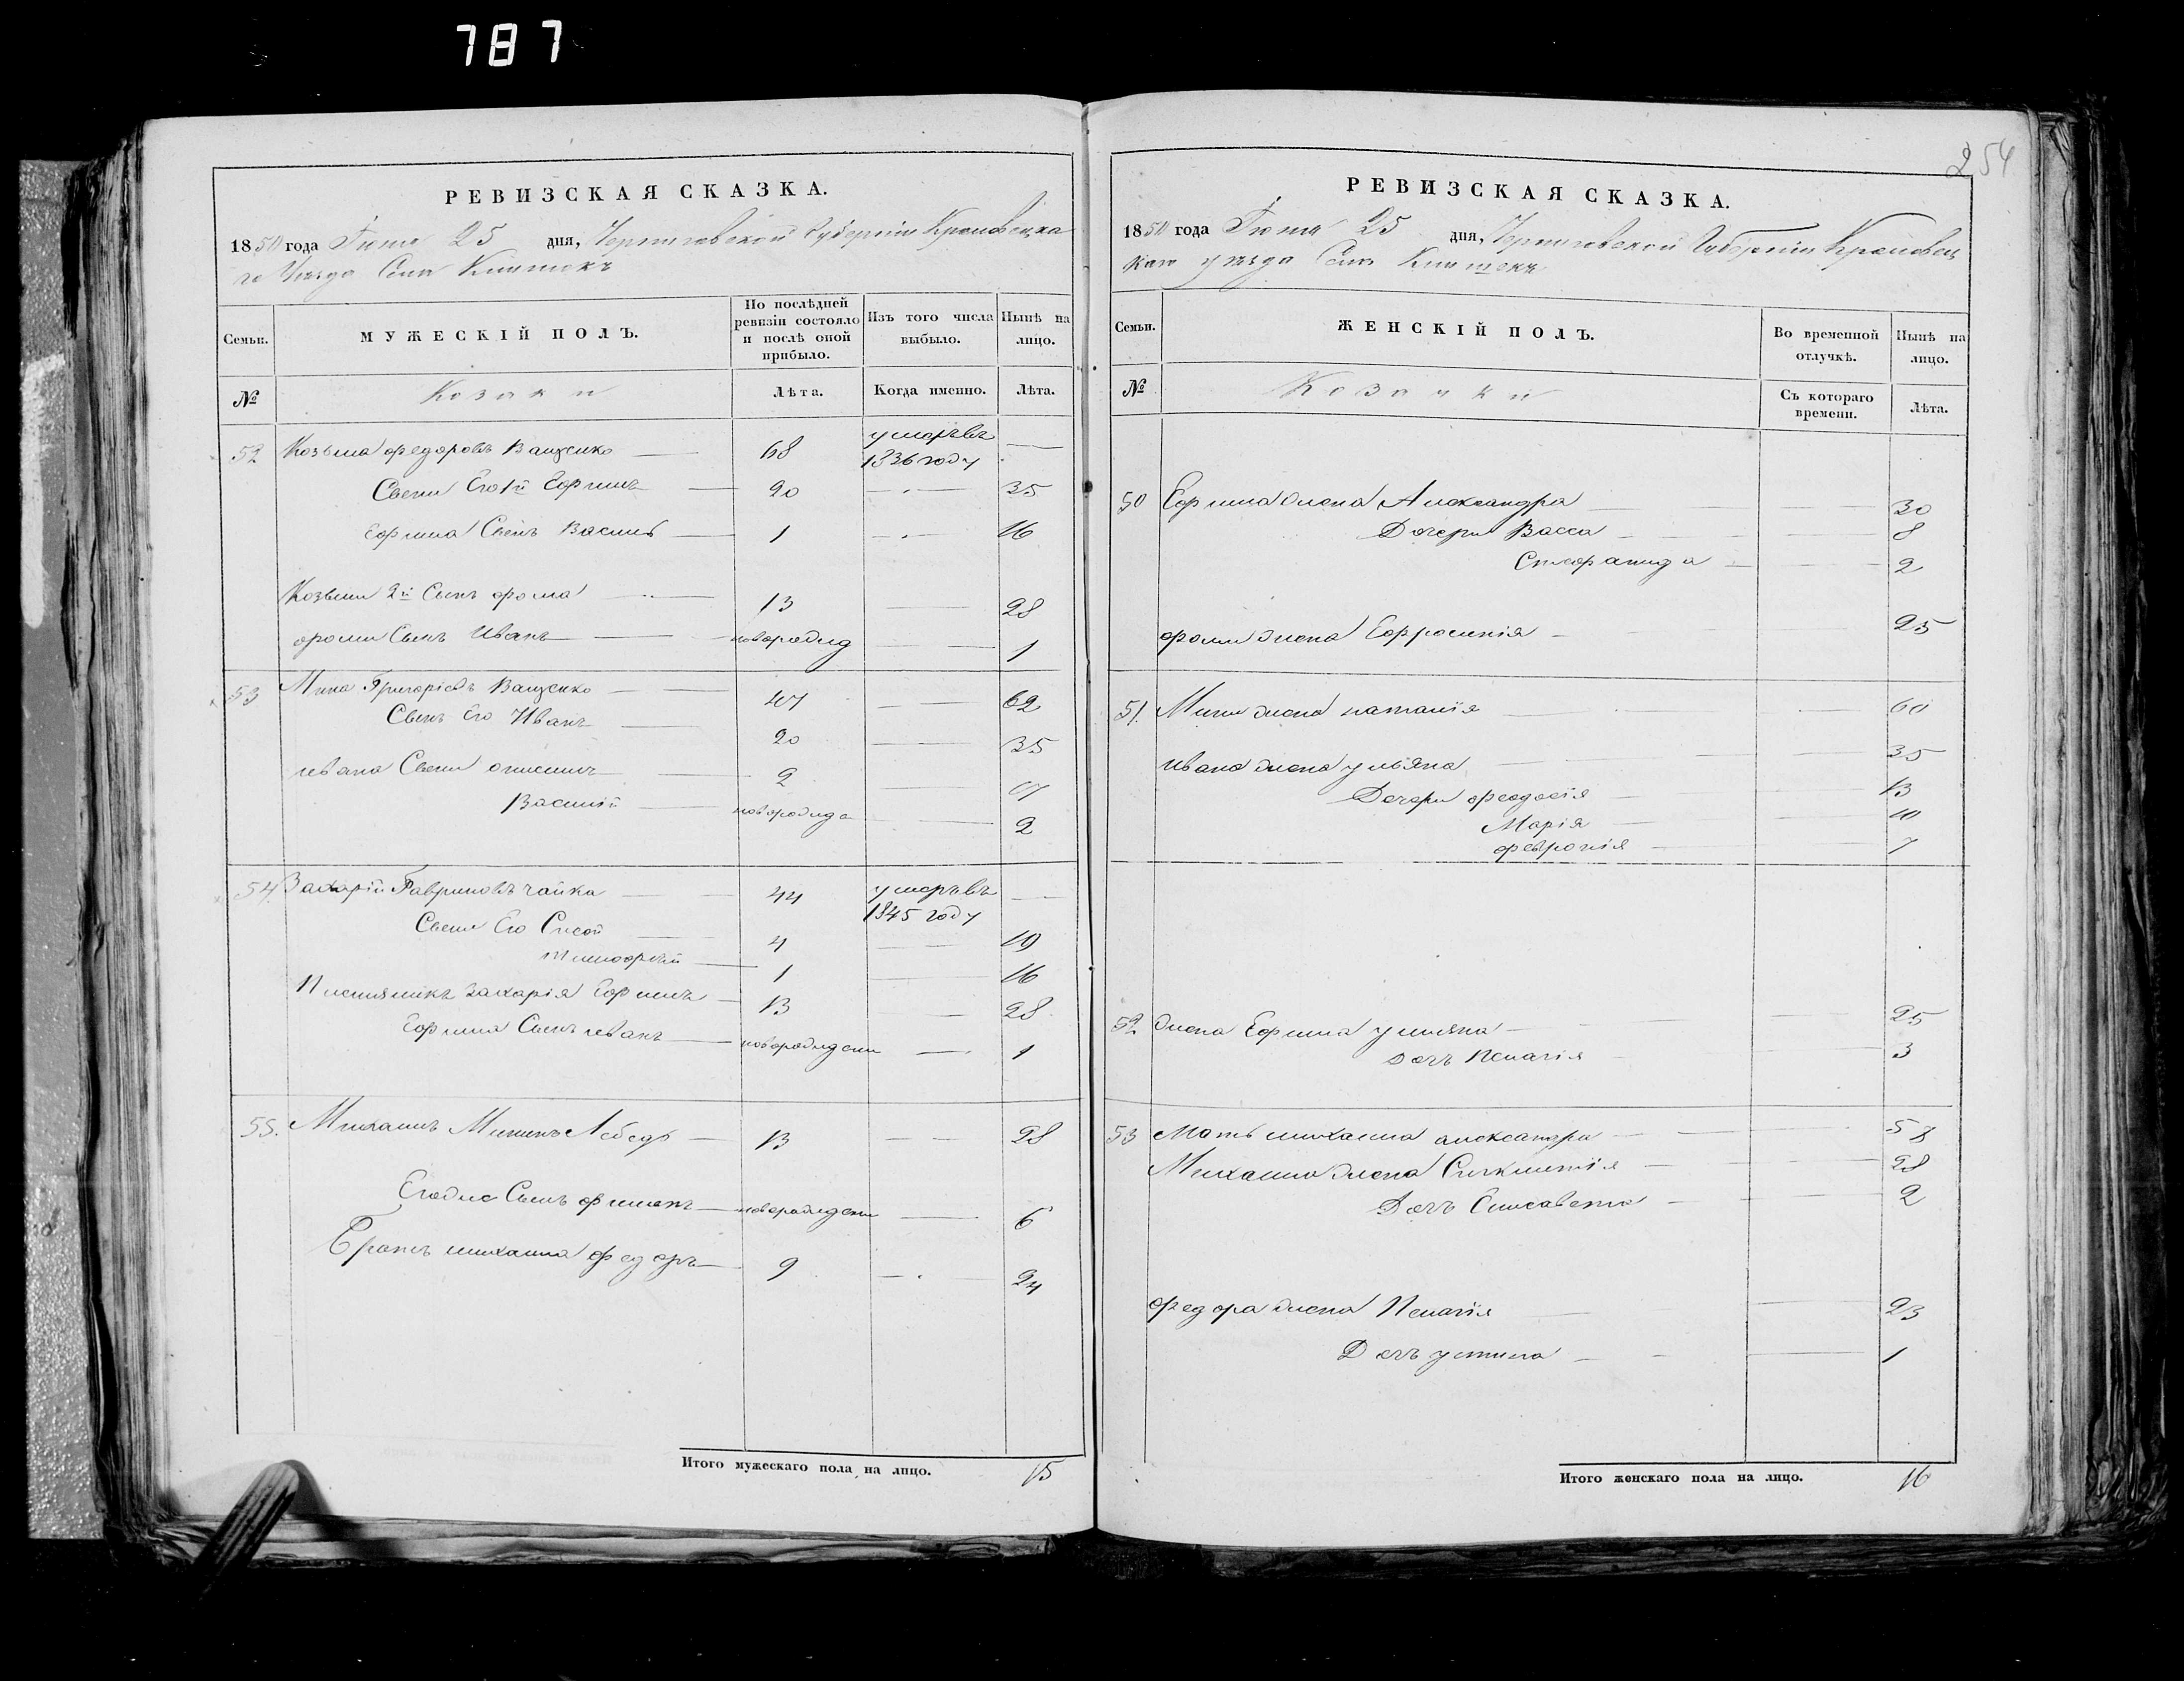 787
254
РЕВИЗСКАЯ СКАЗКА.
1850 года Июня 25 дня, Черниговской Губернiи Кролевецка
го Уезда Села Клишокъ
Семьи.
МУЖЕСКIЙ ПОЛЪ.
По послѣдней ревизiи состояло и послѣ оной прибыло.
Изъ того числа выбыло.
Нынѣ на лицо.
№
Козаки
Лѣта.
Когда именно.
Лѣта.
52 Козьма Федоровъ Ващенко — 68 умеръ въ 1836 году —
Сыны Его 1й Ефимъ — 20 — 35
Ефима Сынъ Василь — 1 — 16
Козьмы 2й Сынъ Фома — 13 — 28
Фомы Сынъ Иванъ — новорожд — 1
53 Мина Григорiевъ Ващенко — 47 — 62
Сынъ Его Иванъ — 20 — 35
Ивана Сыны — 2 — 17
Василiй — новорожде — 2
54 Захарiй Гавриловъ Чайка — 44 умеръ въ 1845 году —
Сыны Его Сисой — 4 — 19
Тимофѣй — 1 — 16
Племянникъ Захарiя Ефимъ — 13 — 28
Ефима Сынъ Иванъ — новорожден — 1
55. Михаилъ Мининъ Лебедь — 13 — 28
Егоже Сынъ Филипъ — новорожден — 6
Братъ Михаила Федоръ — 9 — 24
Итого мужескаго пола на лицо. 15
РЕВИЗСКАЯ СКАЗКА.
1850 года Июня 25 дня, Черниговской Губернiи Кролевец
каго уезда Села Клишокъ
Семьи.
ЖЕНСКIЙ ПОЛЪ.
Во временной отлучкѣ.
Нынѣ на лицо.
№
Козачки
Съ котораго времени.
Лѣта.
50 Ефима жена Александра — 30
Дочери Васса — 8
2
Фомы жена Ефросинiя — 25
51. Мины жена Наталiя — 60
Ивана жена Ульяна — 35
Дочери Феодосiя — 13
Марiя — 10
Феврониiя — 7
52 Жена Ефима Ульяна — 25
Дочь Пелагiя — 3
53 Мать Михаила Александра — 58
Михаила жена Синклитiя — 28
Дочь Елисавета — 2
Федора жена Пелагiя — 23
Дочь Устина — 1
Итого женскаго пола на лицо. 16